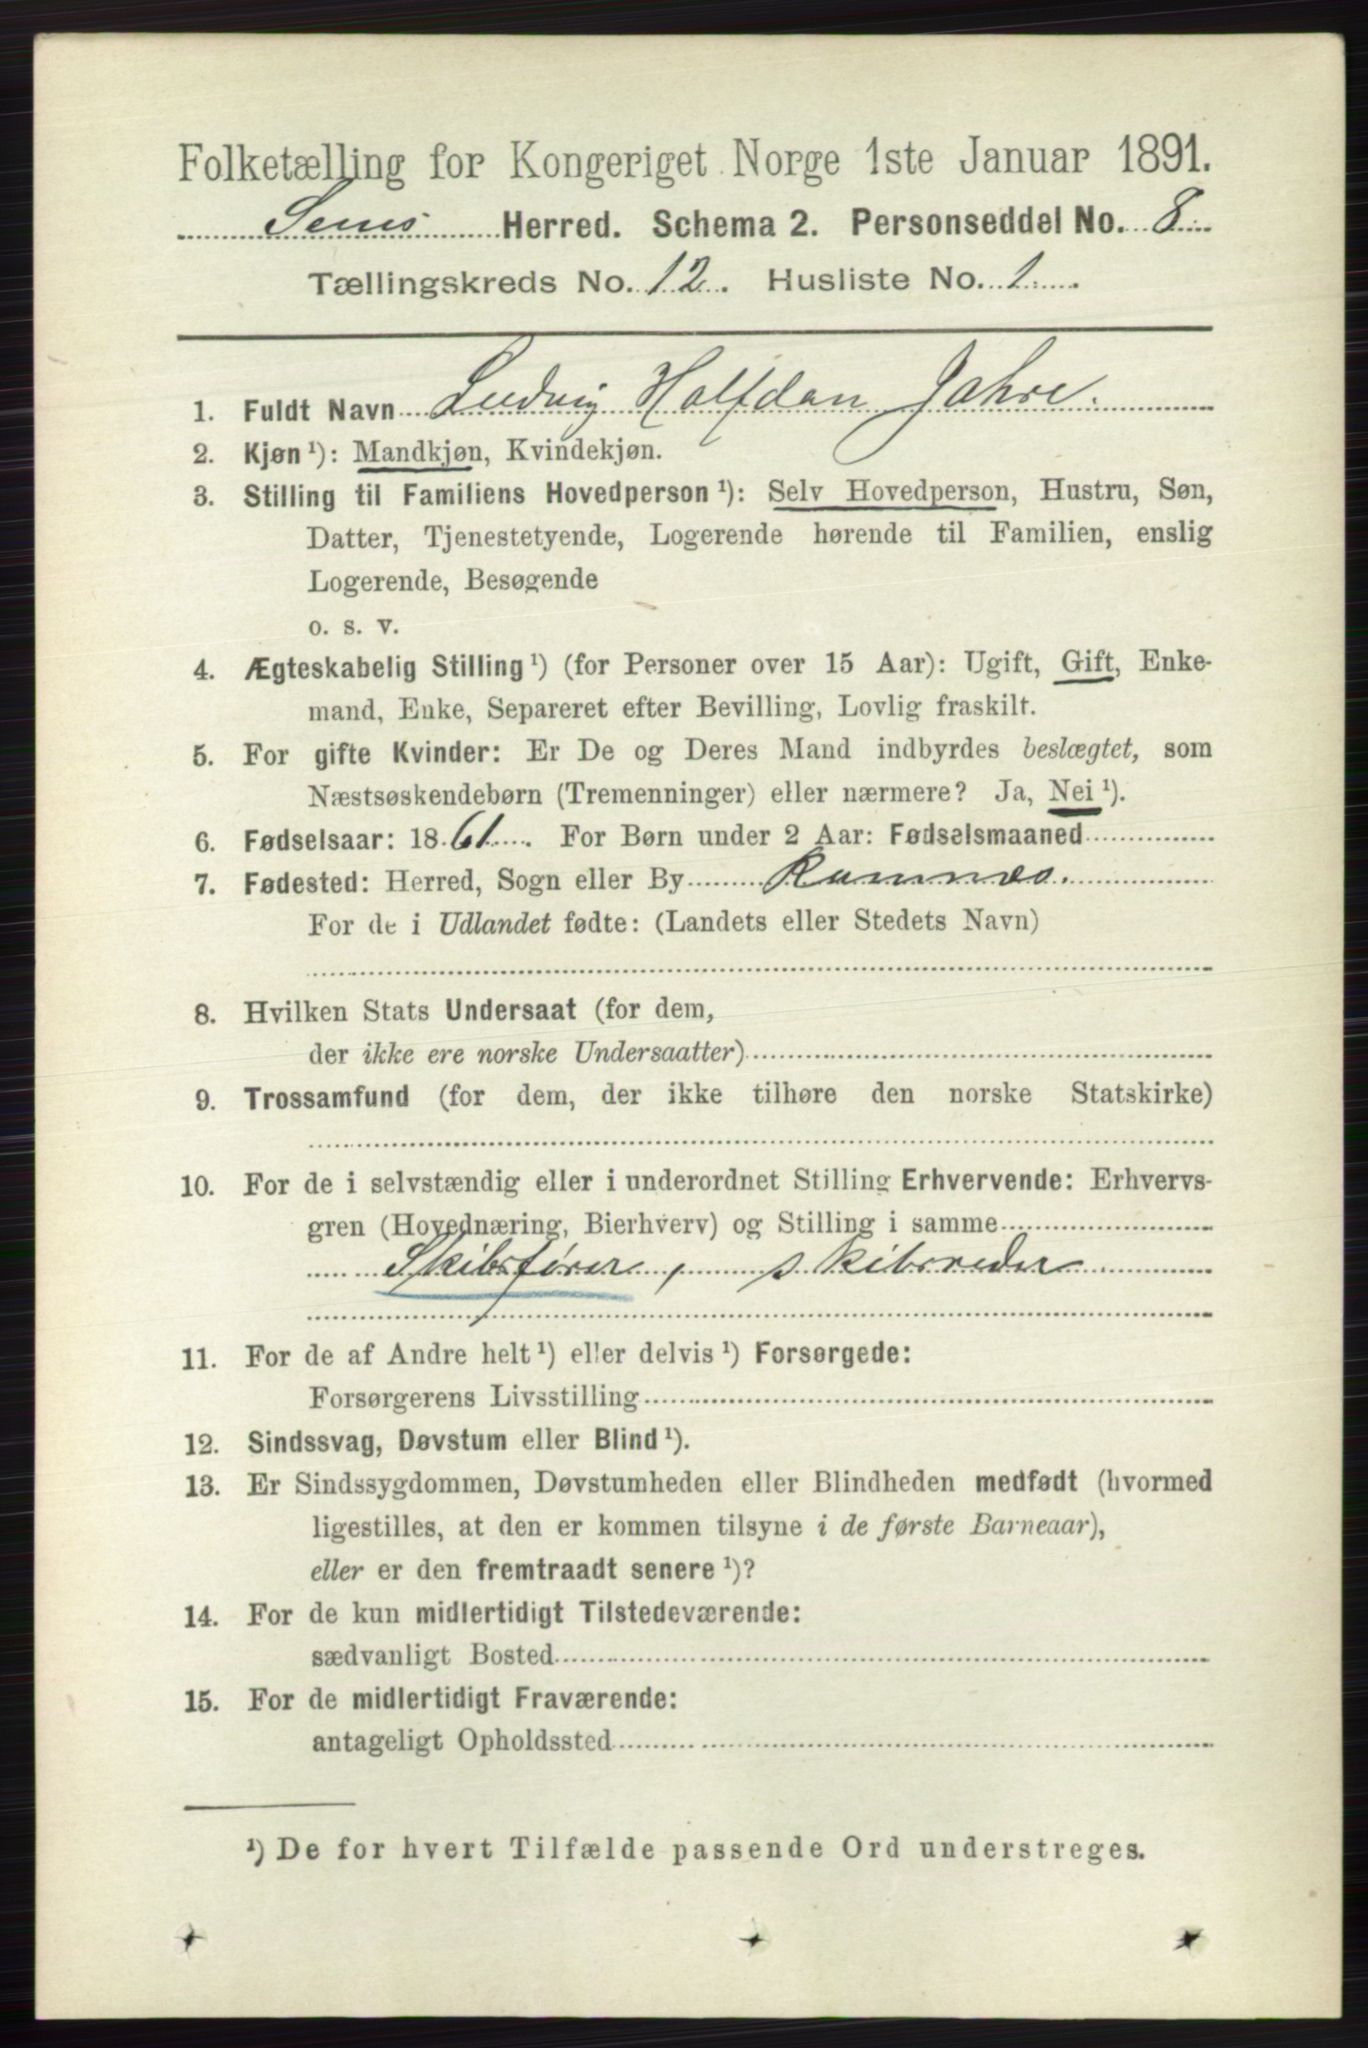 Folketælling for Kongeriget Norge 1ste Januar 1891.
Sems Herred. Schema 2. Personseddel No. 8
Tællingskreds No. 12. Husliste No. 1.
1. Fuldt Navn Ludvig Halfdan Jahre.
2. Kjøn ¹): Mandkjøn, Kvindekjøn.
3. Stilling til Familiens Hovedperson ¹): Selv Hovedperson, Hustru, Søn,
Datter, Tjenestetyende, Logerende hørende til Familien, enslig
Logerende, Besøgende
o. s. v.
4. Ægteskabelig Stilling ¹) (for Personer over 15 Aar): Ugift, Gift, Enke-
mand, Enke, Separeret efter Bevilling, Lovlig fraskilt.
5. For gifte Kvinder: Er De og Deres Mand indbyrdes beslægtet, som
Næstsøskendebørn (Tremenninger) eller nærmere? Ja, Nei ¹).
6. Fødselsaar: 1861. For Børn under 2 Aar: Fødselsmaaned
7. Fødested: Herred, Sogn eller By Ramnæs.
For de i Udlandet fødte: (Landets eller Stedets Navn)
8. Hvilken Stats Undersaat (for dem,
der ikke ere norske Undersaatter)
9. Trossamfund (for dem, der ikke tilhøre den norske Statskirke)
10. For de i selvstændig eller i underordnet Stilling Erhvervende: Erhvervs-
gren (Hovednæring, Bierhverv) og Stilling i samme
Skibsfører, skibsreder
11. For de af Andre helt ¹) eller delvis ¹) Forsørgede:
Forsørgerens Livsstilling
12. Sindssvag, Døvstum eller Blind ¹).
13. Er Sindssygdommen, Døvstumheden eller Blindheden medfødt (hvormed
ligestilles, at den er kommen tilsyne i de første Barneaar),
eller er den fremtraadt senere ¹)?
14. For de kun midlertidigt Tilstedeværende:
sædvanligt Bosted
15. For de midlertidigt Fraværende:
antageligt Opholdssted
¹) De for hvert Tilfælde passende Ord understreges.